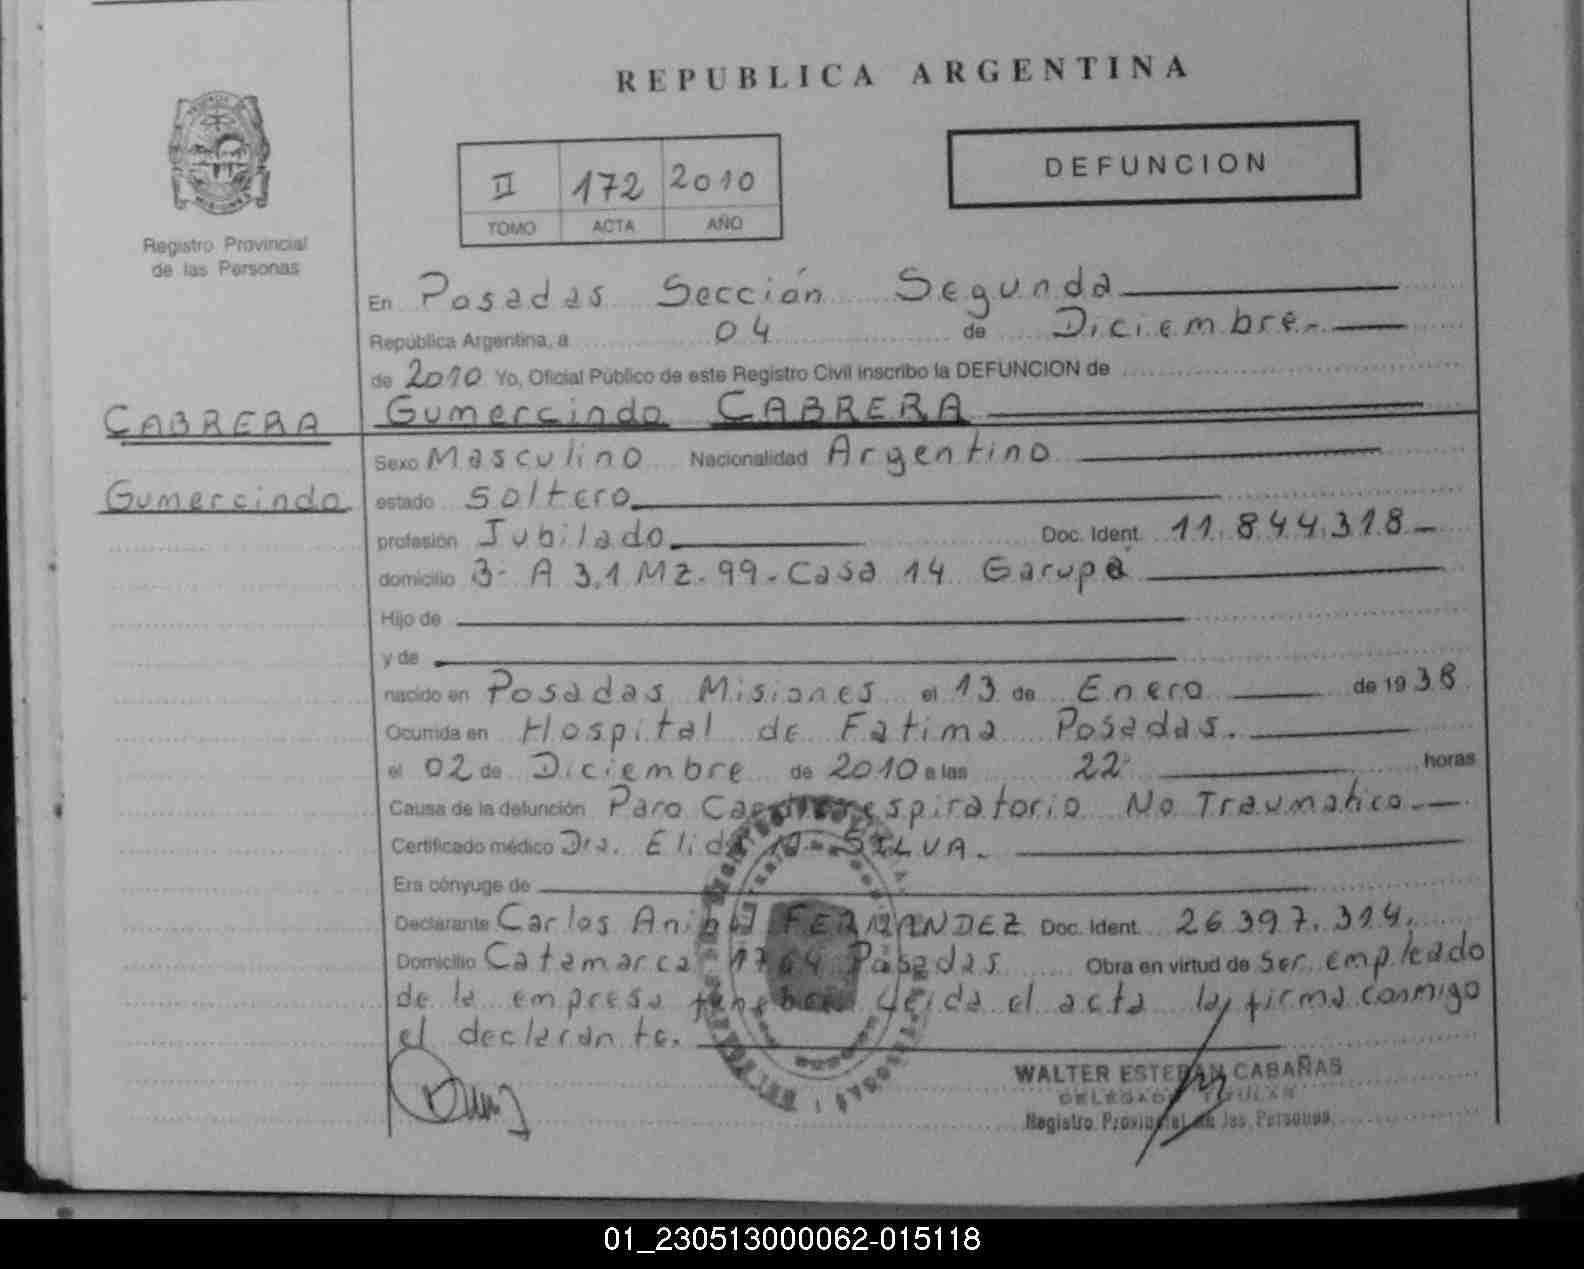 REPUBLICA ARGENTINA
II 172 2010
TOMO ACTA AÑO
DEFUNCION
Registro Provincial
de las Personas
En Posadas Sección Segunda
República Argentina, a 04 de Diciembre.-
de 2010 Yo, Oficial Público de este Registro Civil inscribo la DEFUNCION de
CABRERA
Gumercindo
Gumercindo CABRERA
Sexo Masculino Nacionalidad Argentino
estado soltero
profesión Jubilado Doc. Ident. 11.844.318-
domicilio 3- A 3.1 MZ-99-Casa 14 Garupa
Hijo de
y de
nacido en Posadas Misiones el 13 de Enero de 1938
Ocurrida en Hospital de Fatima Posadas.
el 02 de Diciembre de 2010 a las 22 horas
Causa de la defunción Paro Cardiorespiratorio No Traumatico.-
Certificado médico Dra. Elida SILVA.
Era cónyuge de
Declarante Carlos Anibal FERNANDEZ Doc. Ident. 26.397.314.
Domicilio Catamarca 1764 Posadas Obra en virtud de ser empleado
de la empresa funebre leida el acta la firma conmigo
el declarante.
WALTER ESTEBAN CABAÑAS
DELEGADO TITULAR
Registro Provincial de las Personas
01_230513000062-015118